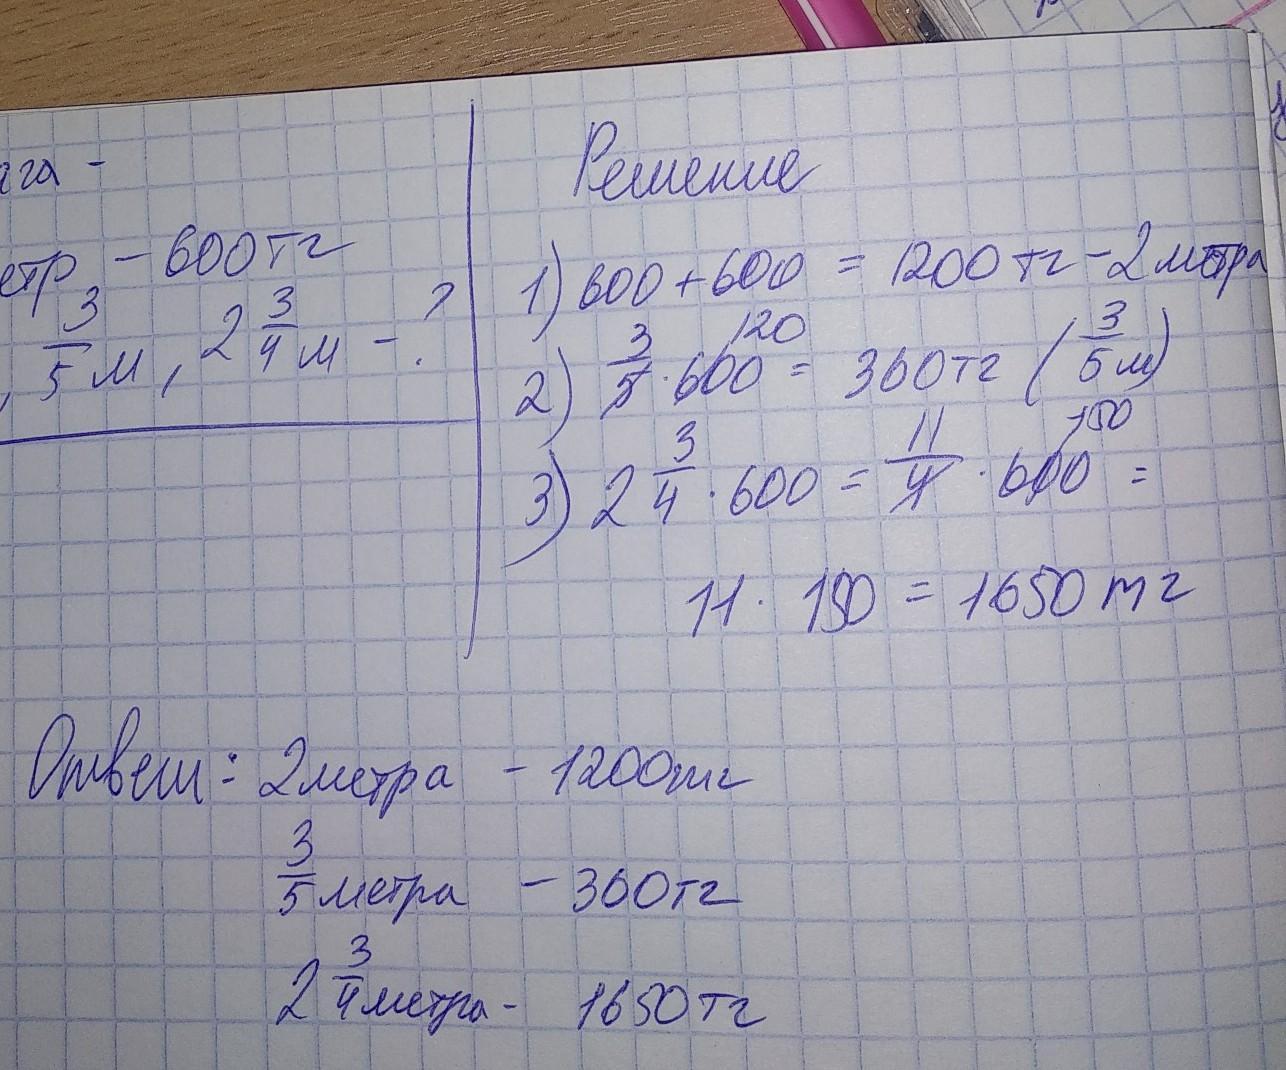 ага -
етр - 600 тг
, 3/5 м, 2 3/4 м - ?
Решение
1) 600 + 600 = 1200 тг - 2 метра
2) 3/5 · 600 120 = 360 тг (3/5 м)
3) 2 3/4 · 600 = 11/4 · 600 150 =
11 · 150 = 1650 тг
Ответ: 2 метра - 1200 тг
3/5 метра - 360 тг
2 3/4 метра - 1650 тг